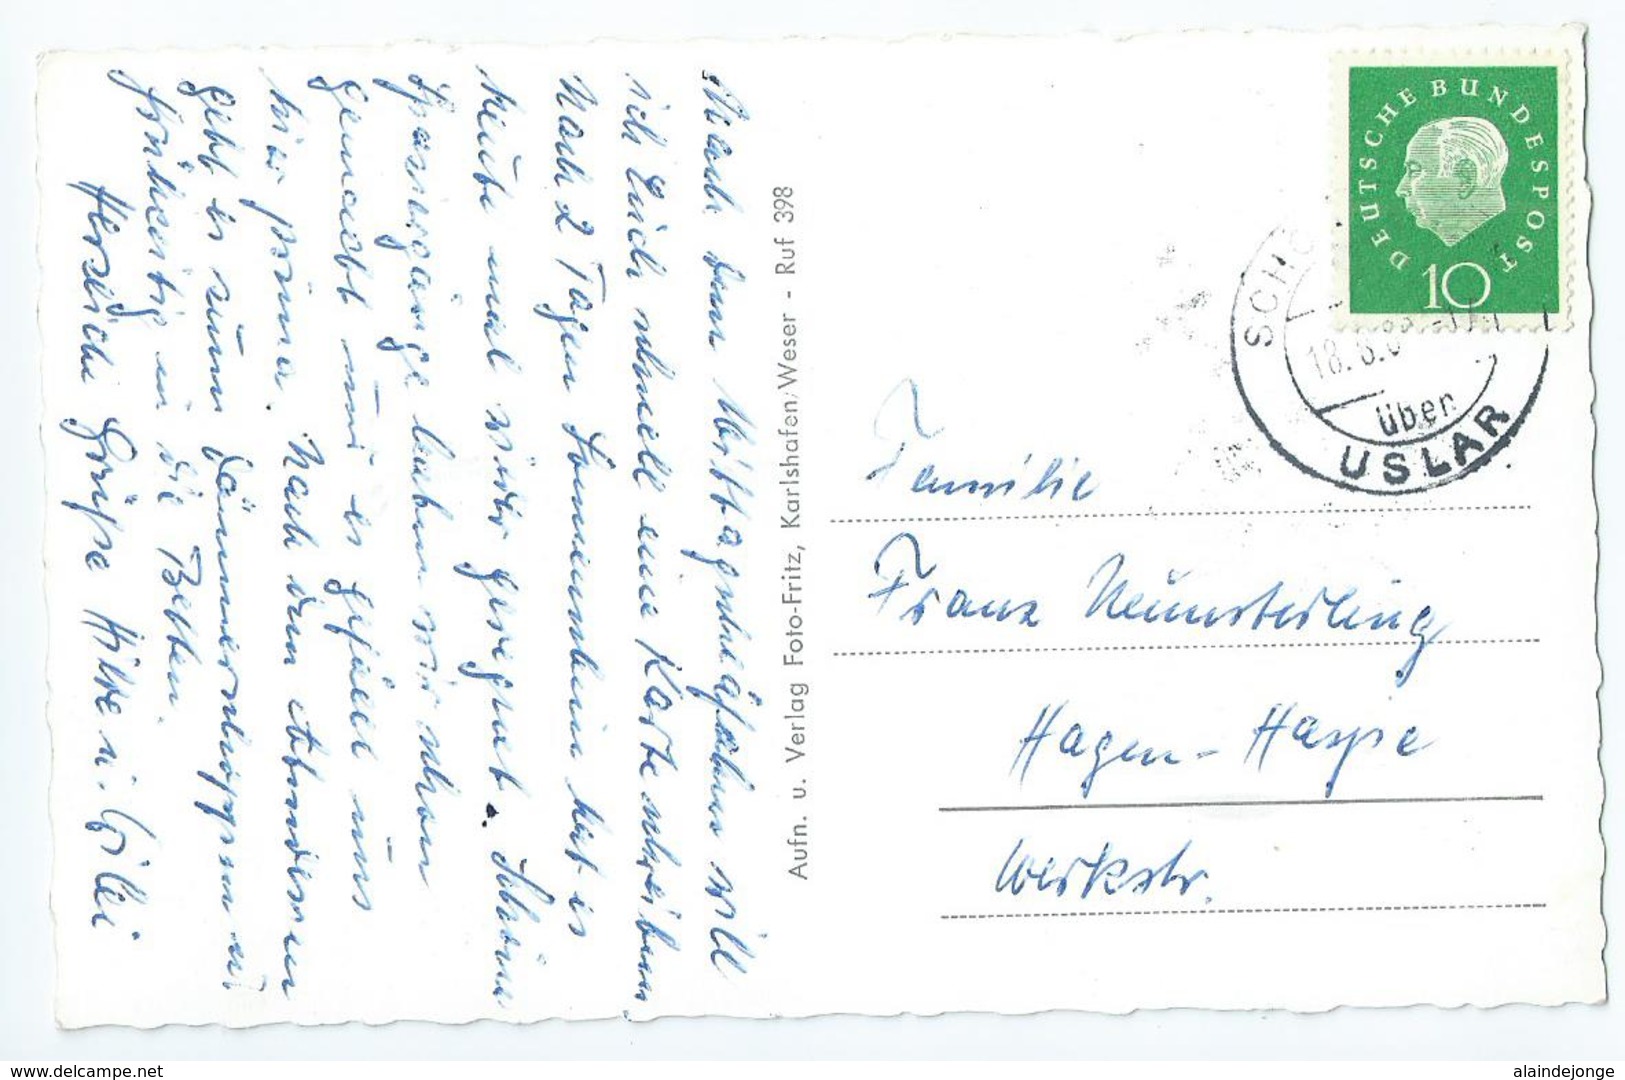 Nach dem Mittagsschläfchen will
ich Euch schnell eine Karte schreiben.
Nach 2 Tagen Sonnenschein hat es
heute mal wieder geregnet. Schöne
Spaziergänge haben wir schon
gemacht und es gefällt uns
hier prima. Nach dem Abendessen
geht es zum Dämmerschoppen und
frühzeitig in die Betten.
Herzliche Grüße Hilde u. Cilli
Aufn. u. Verlag Foto-Fritz, Karlshafen/Weser - Ruf 398
DEUTSCHE BUNDESPOST
10
18.8.
über
USLAR
Familie
Franz
Hagen-Haspe
Werkstr.
www.delcampe.net
alaindejonge